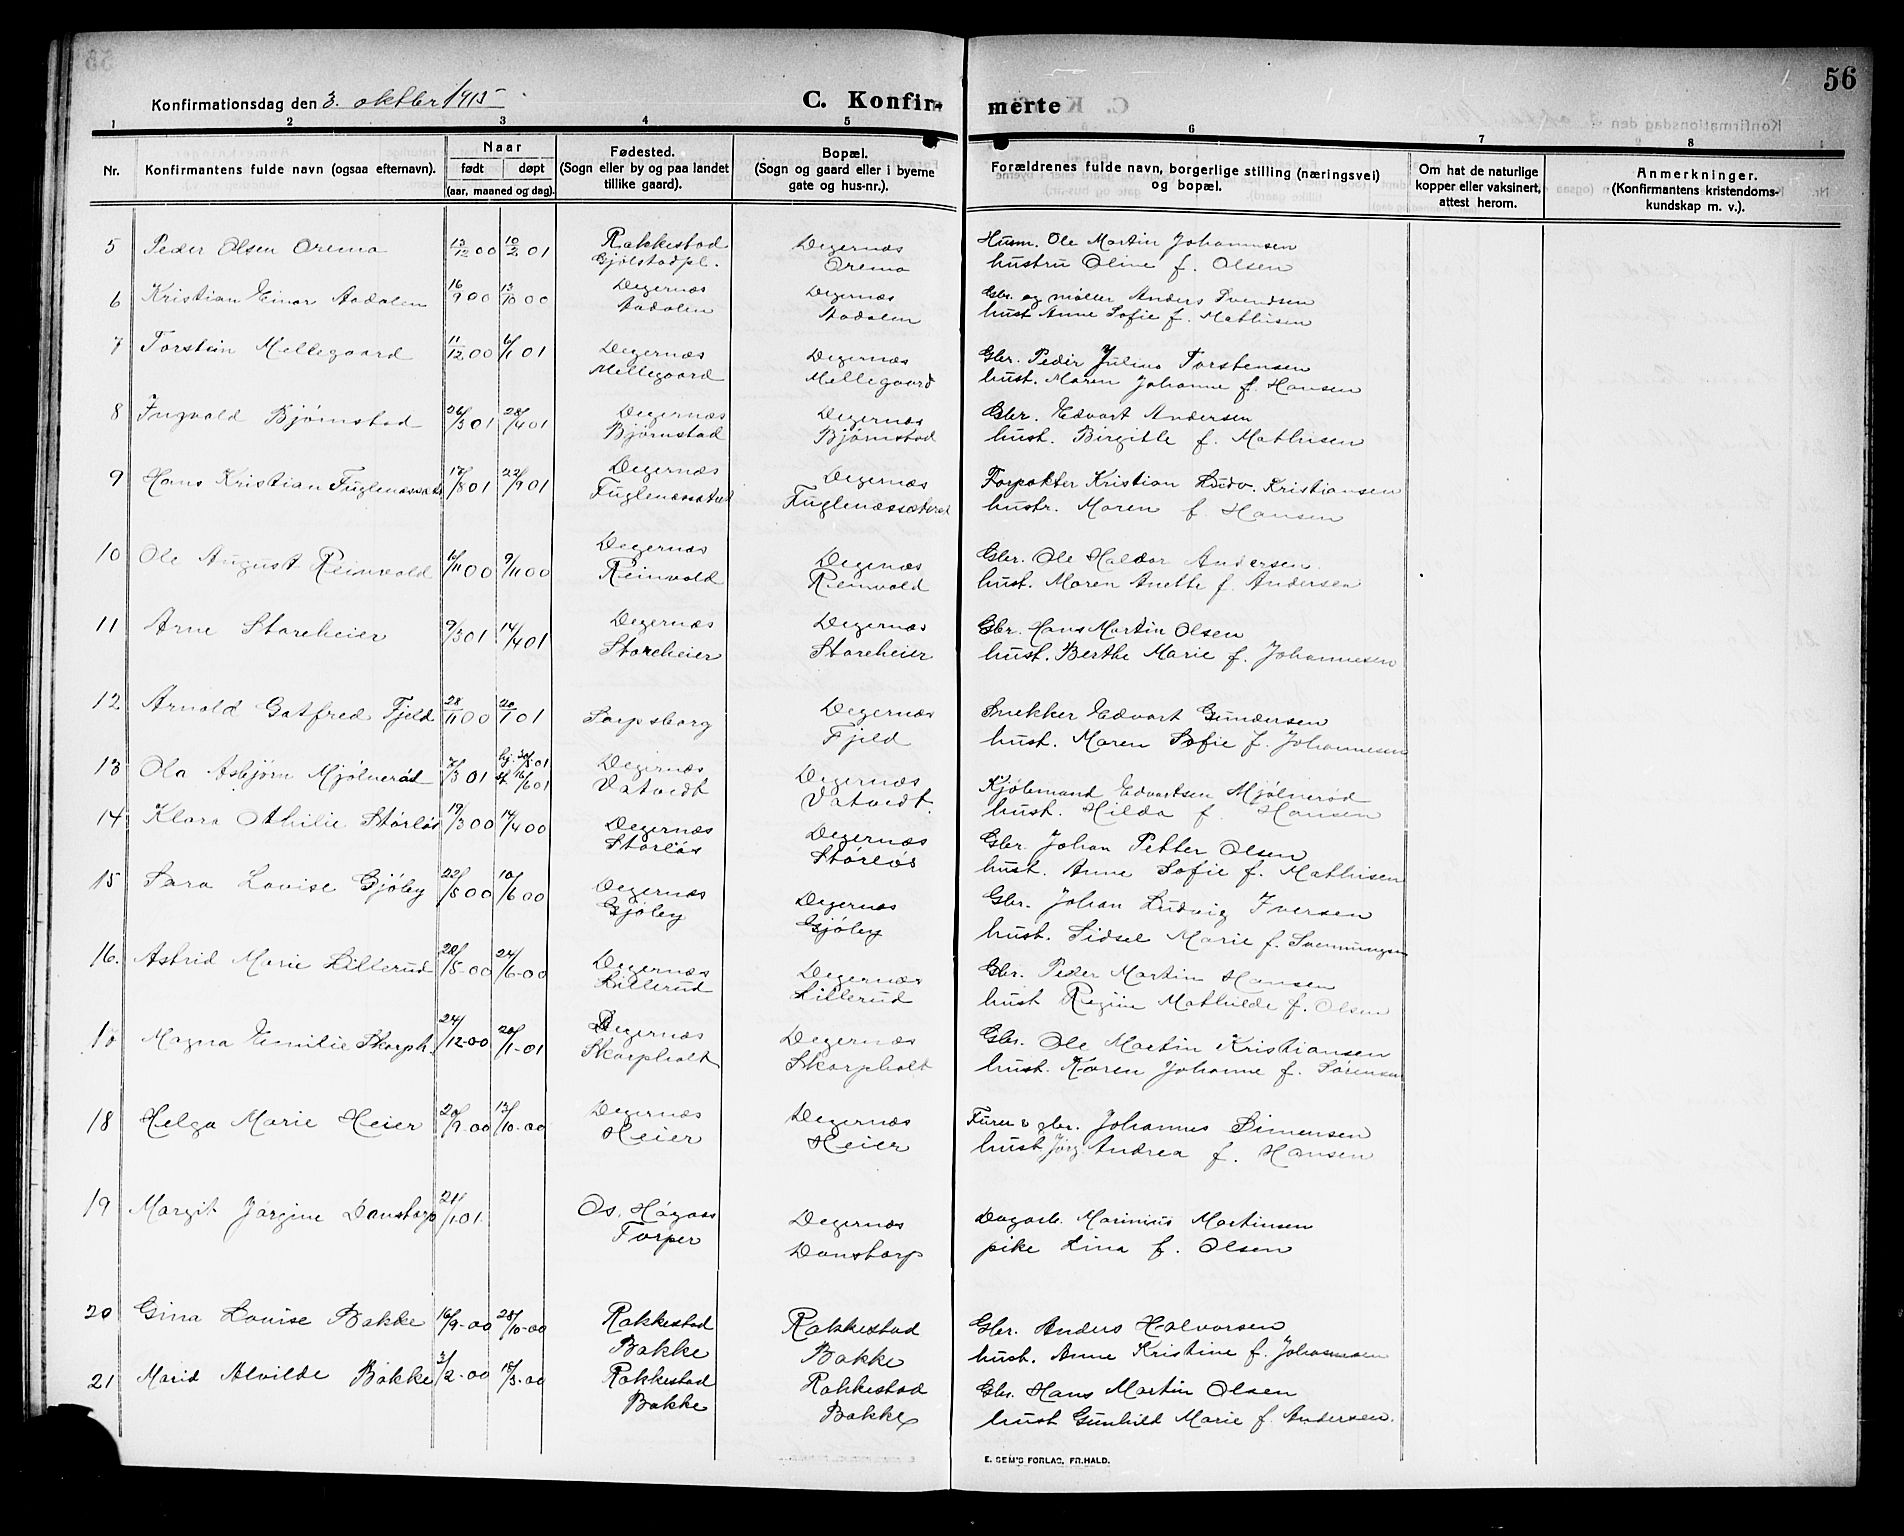 56
Konfirmationsdag den 3. oktber 1915
C. Konfir- merte
1 2 3 4 5 6 7 8
Nr. Konfirmantens fulde navn (ogsaa efternavn). Naar født døpt (aar, maaned og dag). Fødested. (Sogn eller by og paa landet tillike gaard). Bopæl. (Sogn og gaard eller i byerne gate og hus-nr.). Forældrenes fulde navn, borgerlige stilling (næringsvei) og bopæl. Om hat de naturlige kopper eller vaksinert, attest herom. Anmerkninger. (Konfirmantens kristendoms- kundskap m. v.).
5 Peder Olsen Oremo 13/12 00 10/2 01 Rakkestad Degernæs Husm. Ole Martin Johannsen
Gjølstadpl. Oremo hustru Oline f. Olsen
6 Kristian Einar Aadalen 16/9 00 13/10 00 Degernæs Degernæs Gbr. og møller Anders Svendsen
Aadalen Aadalen hust Anne Sofie f. Mathisen
7 Torstein Mellegaard 11/12 00 6/1 01 Degernæs Degernæs Gbr. Peder Julius Torstensen
Mellegaard Mellegaard hust. Maren Johanne f. Hansen
8 Ingvald Bjørnstad 26/3 01 28/4 01 Degernæs Degernæs Gbr. Edvart Andersen
Bjørnstad Bjørnstad hust. Birgitte f. Mathisen
9 Hans Kristian Fuglenessæt 17/8 01 22/9 01 Degernæs Degernæs Forpakter Kristian Ludv. Kristiansen
Fuglenæssæteret Fuglenæssæteret hustr. Maren f. Hansen
10 Ole August Reinvold /11 00 9/11 00 Degernæs Degenæs Gbr. Ole Haldor Andersen
Reinvold Reinvold hust. Maren Anethe f. Andersen
11 Arne Storeheier 9/3 01 14/4 01 Degernæs Degernæs Gbr. Hans Martin Olsen
Storeheier Storeheier hust. Berthe Marie f. Johannesen
12 Arnold Gotfred Fjeld 28/11 00 20/1 01 Sarpsborg Degernæs Snekker Edvart Gundersen
Fjeld hust. Maren Sofie f. Johannesen
13 Ola Asbjørn Mjølnerød /3 01 hj. 30/5 01 st. 16/6 01 Degernæs Degernæs Kjøbmand Edvartsen Mjølnerød
Vatvedt Vatvedt. hust. Hilda f. Hansen
14 Klara Othilie Størløs 17/3 00 14/4 00 Degernæs Degernæs Gbr. Johan Petter Olsen
Størløs Størløs hust. Anne Sofie f. Mathisen
15 Sara Lovise Gjøley 22/5 00 10/6 00 Degernæs Degernæs Gbr. Johan Ludvig Iversen
Gjøley Gjøley hust. Sidsel Marie f. Svenningsen
16. Astrid Marie Lillerud 28/5-00 24/6-00 Degernæs Degernæs Gbr. Peder Martin Hansen
Lillerud Lillerud hust Regine Mathilde f. Olsen
Magna Emilie Skorph. 24/12-00 20/1-01 Degernæs Degernæs Gbr. Ole Martin Kristiansen
Skorpholt Skorpholt hust. Karen Johanne f. Sørensen
18 Helga Marie Heier 20/9-00 13/10-00 Degernæs Degernæs Furer & gbr. Johannes Simensen
Heier Heier hust Jørg Andrea f. Hansen
19 Margit Jørgine Danstorp 21/1 01. Os, Høgaas Degernæs Dagarb. Marinius Martinsen
Torper Danstorp pike Lina f. Olsen
20 Gina Lovise Bakke 16/9-00 28/10-00 Rakkestad Rakkestad Gbr. Anders Halvorsen
Bakke Bakke hust. Anne Kristine f. Johannesen
21 Marid Alvilde Bakke 3/2-00 18/3-00 Rakkestad Rakkestad Gbr. Hans Martin Olsen
Bakke Bakke hust Gunhild Marie f. Andersen.
E. SEM'S FORLAG, FR.HALD.